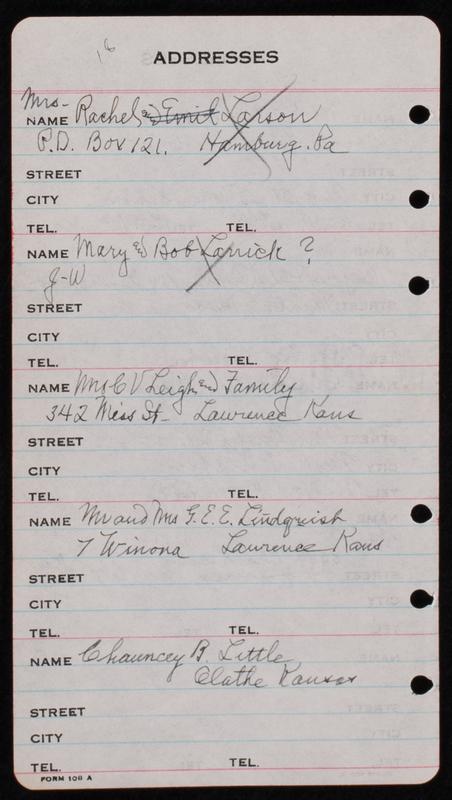 16
ADDRESSES
Mrs-
NAME Rachel and Emil Larson
P.O. Box 121. Hamburg. Pa
STREET
CITY
TEL. TEL.
NAME Mary & Bob Larrick ?
J-W
STREET
CITY
TEL. TEL.
NAME Mrs C V Leigh and Family
342 Miss St- Lawrence Kans
STREET
CITY
TEL. TEL.
NAME Mr and Mrs G. E. E. Lindquish
7 Winona Lawrence Kans
STREET
CITY
TEL. TEL.
NAME Chauncey B. Little
Olathe Kansas
STREET
CITY
TEL. TEL.
FORM 108 A